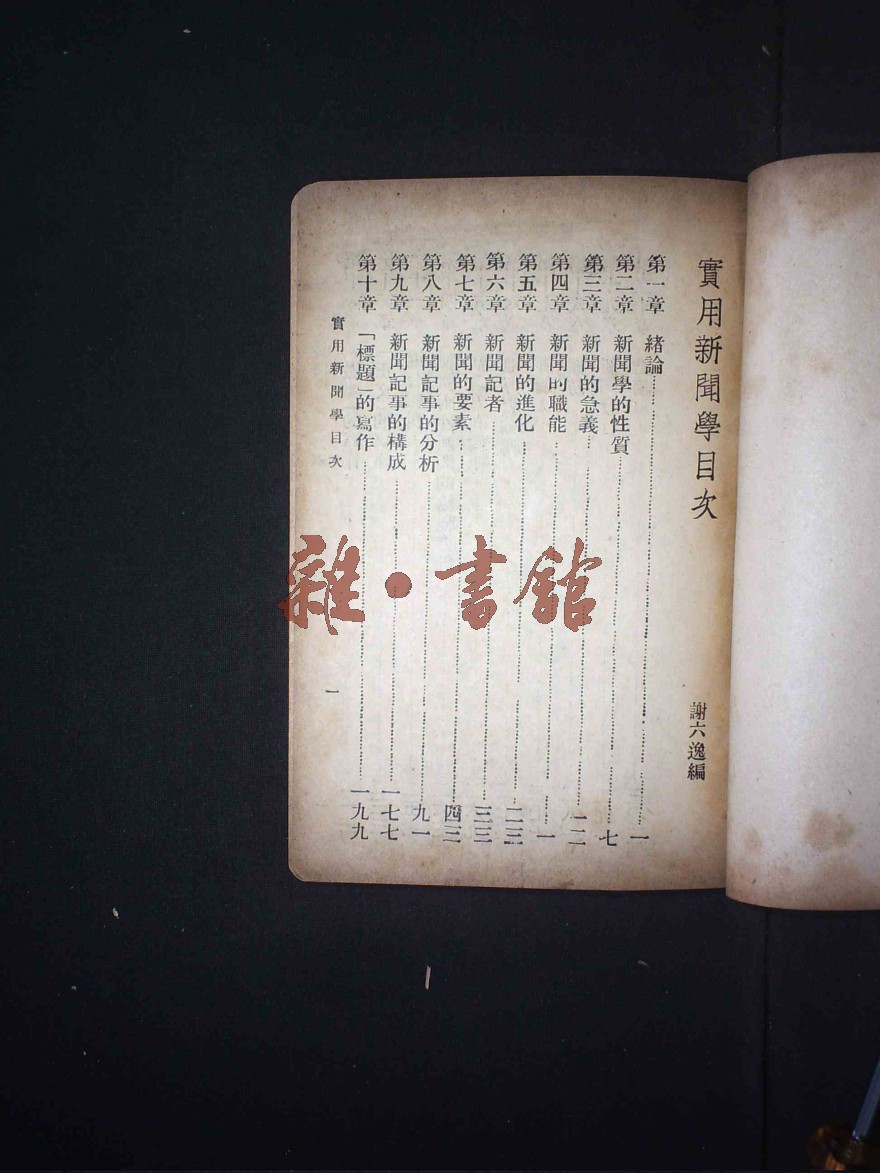 實用新聞學目次
謝六逸編
第一章 緒論 一
第二章 新聞學的性質 七
第三章 新聞的急義 一二
第四章 新聞的職能 一
第五章 新聞的進化 二三
第六章 新聞記者 三三
第七章 新聞的要素 四三
第八章 新聞記事的分析 九一
第九章 新聞記事的構成 一七七
第十章 「標題」的寫作 一九九
實用新聞學目次
一
雜・書館